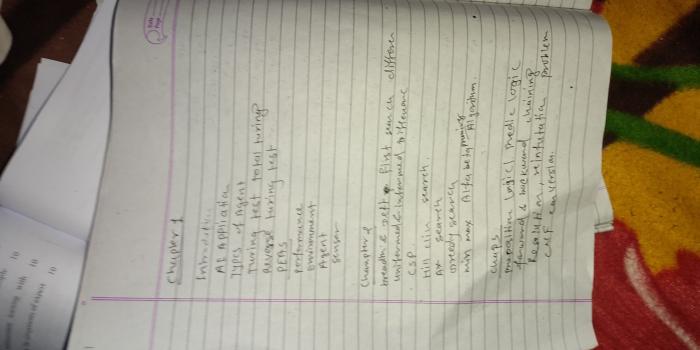 Chapter 1
Introduction
AI Application
Types of Agent
Turing test total turing
Reverse turing test
PEAS
performance
environment
Agent
sensor
Champter 2
breadth & First search differen
uniformed & Informed Difference
CSP
Hill clim search.
A* search
Greedy search
min max Alfa beta pruning Algorithm.
Chap3
proposition logic, predic logic
forward & backward chaining
Resolution, reinfutation problem
CNF conversion.
10
with 10
10